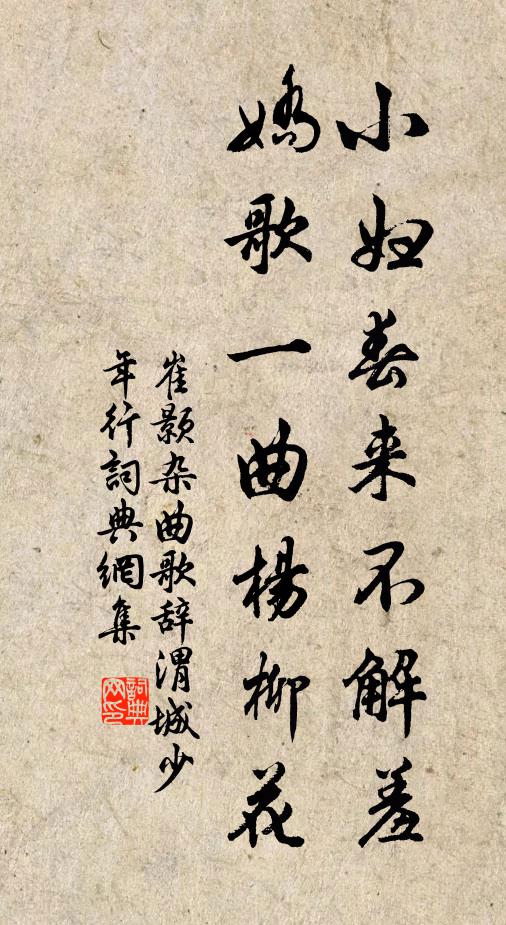 小妇春来不解羞
嬌歌一曲楊柳花
崔颢杂曲歌辞渭城少
年行詞典網集
詞典
网印